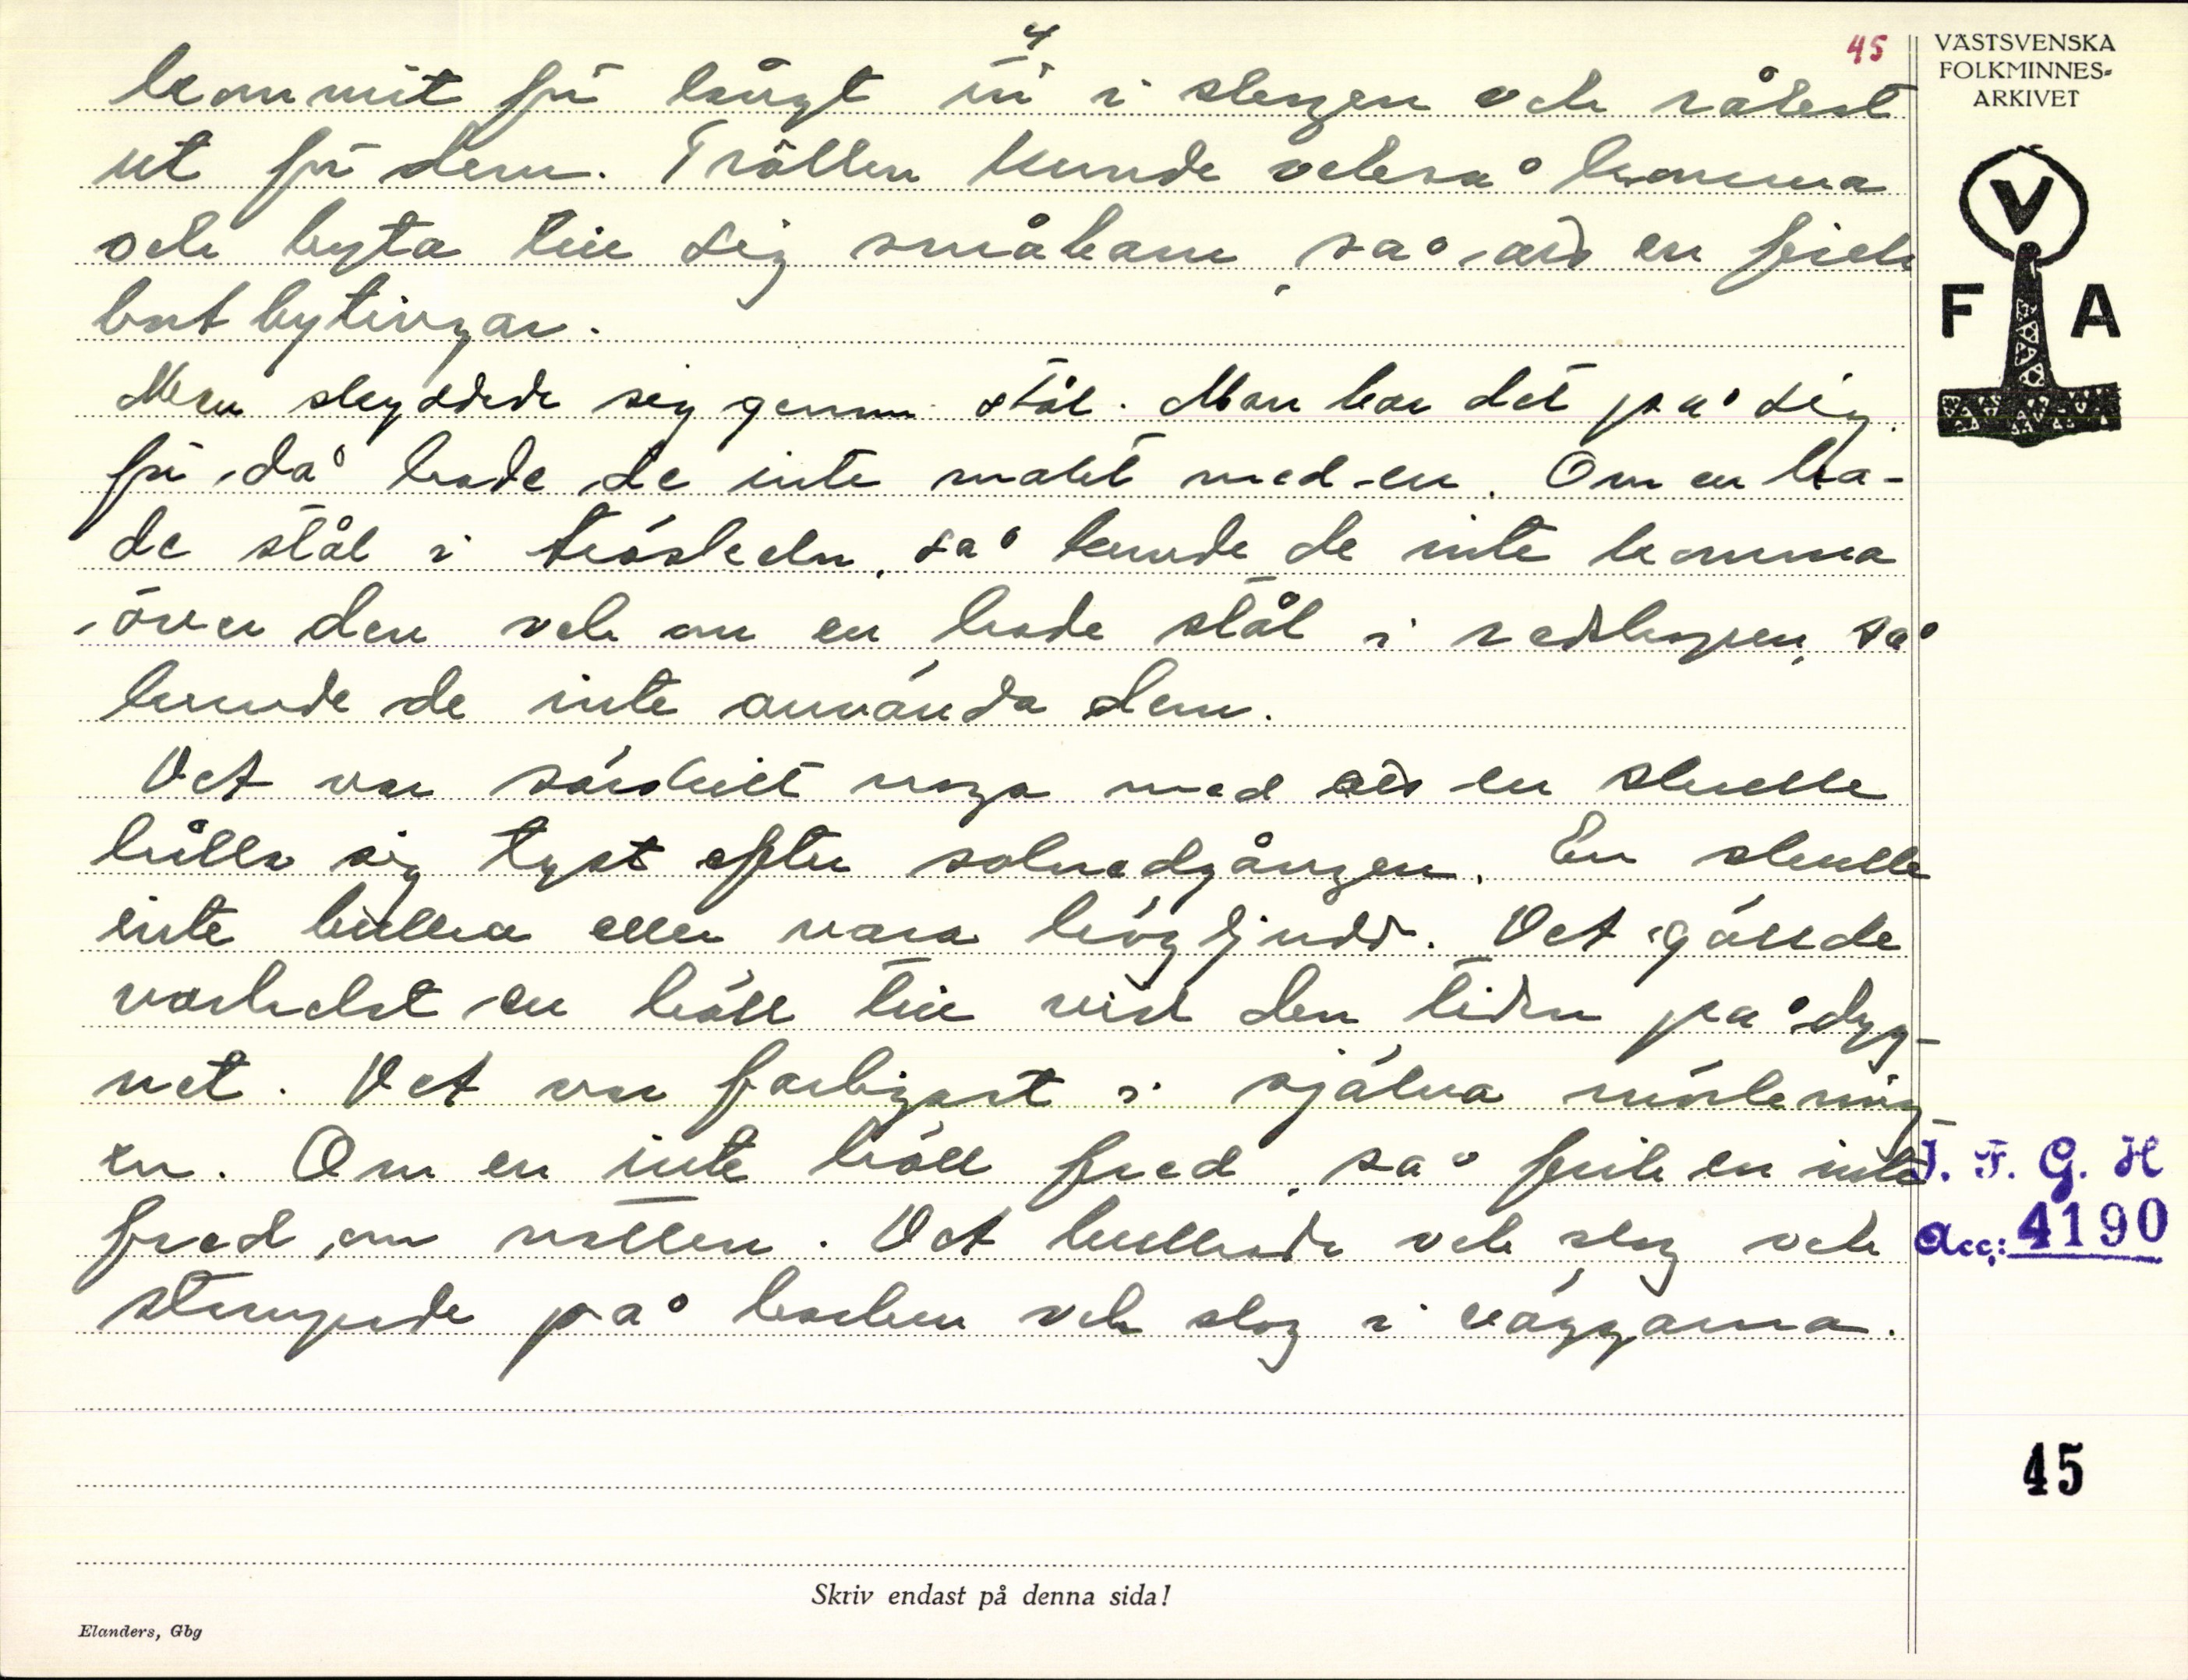 4
45
kommit för långt in i skogen och råkat
ut för dem. Trollen kunde också komma
och byta till sig småbarn, så att en fick
bortbytingar.
Men skyddade sig genom stål. Man bar det på sig,
för då hade de inte makt med en. Om en ha-
de stål i tröskeln, så kunde de inte komma
över den och om en hade stål i redskapen, så
kunde de inte använda dem.
Det var särskilt noga med att en skulle
hålla sig tyst efter solnedgången. En skulle
inte bullra eller vara högljudd. Det gällde
varhelst en höll till vid den tiden på dyg-
net. Det var farligast i själva mörkning-
en. Om en inte höll fred, så fick en inte
fred om natten. Det bullrade och slog och
stampade på backen och slog i väggarna.
VÄSTSVENSKA
FOLKMINNES-
ARKIVET
V
F A
I. F. G. H
Acc: 4190
45
Skriv endast på denna sida!
Elanders, Gbg